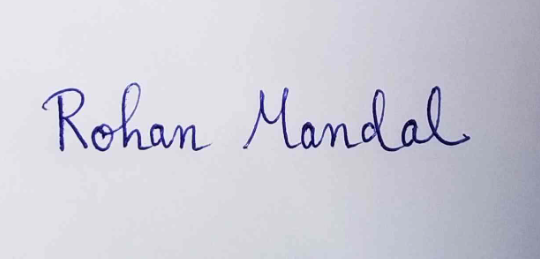 Rohan Mandal